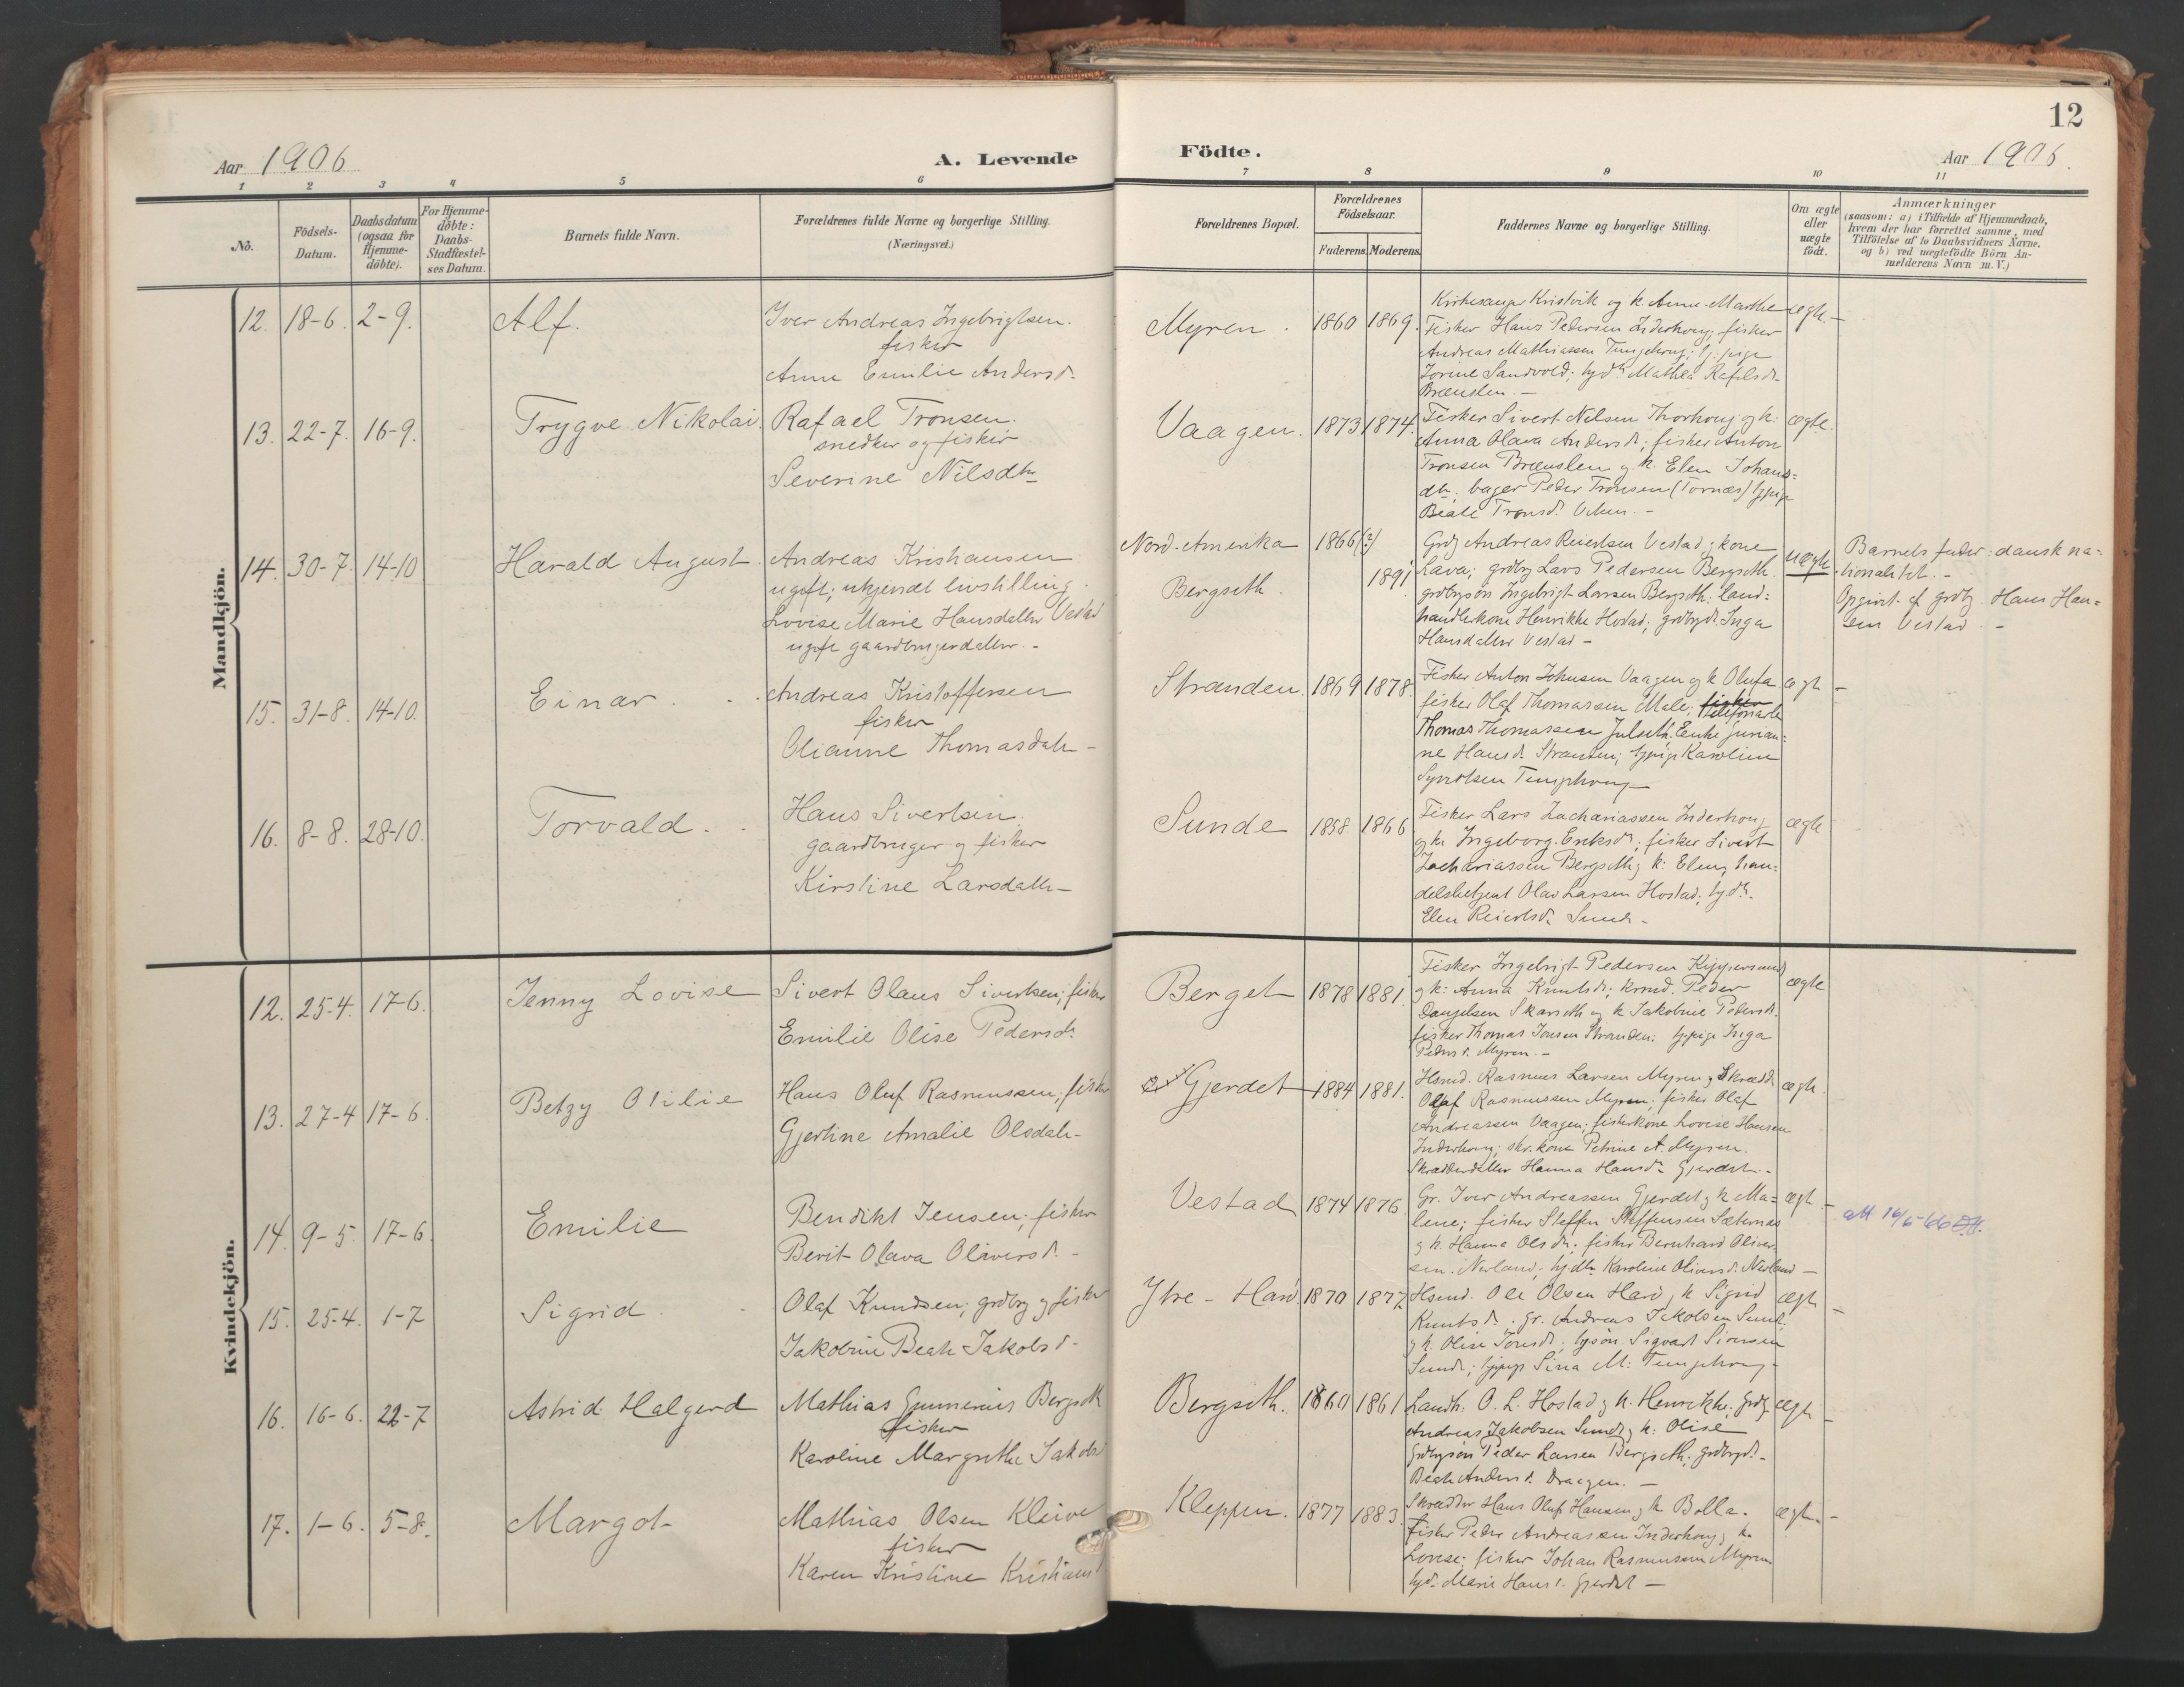 12
Aar 1906
A. Levende Födte.
Aar 1906.
1 2 3 4 5 6 7 8 9 10 11
No.
Födsels-
Datum.
Daabsdatum
(ogsaa for
Hjemme-
döbte).
For Hjemme-
döbte:
Daabs-
Stadfæstel-
ses Datum.
Barnets fulde Navn.
Forældrenes fulde Navne og borgerlige Stilling.
(Næringsvei.)
Forældrenes Bopæl.
Forældrenes
Födselsaar.
Faderens. Moderens.
Faddernes Navne og borgerlige Stilling.
Om ægte
eller
uægte
födt.
Anmærkninger
(saasom: a) i Tilfælde af Hjemmedaab,
hvem der har forrettet samme, med
Tilföielse af to Daabsvidners Navne,
og b) ved uægtefödte Börn An-
melderens Navn m. V.)
Mandkjön.
12. 18-6. 2-9. Alf.
Iver Andreas Ingebrigtsen.
fisker
Anne Emilie Andersd.
Myren. 1860 1869.
Kirkesanger Kristvik og k. Anne-Marthe
Fisker Hans Pedersen Inderhoug; fisker
Andreas Mathiassen Tungehoug; tj. pige
Jorine Sandvold; tyd. Mathea Rafelsd.
Brænslen. -
ægte. -
13. 22-7. 16-9. Trygve Nikolai.
Rafael Tronsen.
snedker og fisker
Severine Nilsdtr
Vaagen. 1873 1874.
Fisker Sivert Nilsen Thorhoug og k.
Anna Olava Andersd.; fisker Anton
Tronsen Brænslen og k. Elen Johans=
dtr; bager Peder Tronsen (Tornæs) tjpige
Beate Tronsd.
ægte.
14. 30-7. 14-10 Harald August
Andreas Kristiansen
ugift; ukjendt livsstilling.
Lovise Marie Hansdatter Vestad
ugift gaardbrugerdatter. -
Nord-Amerika 1866(?)
Bergseth. 1891
Grdbr Andreas Reiertsen Vestad og kone
Lava; grdbrg Lars Pedersen Bergseth
grdbrgsön Ingebrigt Larsen Bergseth; land=
handlerkone Henrikke Hostad; grdbrgd. Inga
Hansdatter Vestad -
uægte
Barnets fader: dansk na=
tionalitet. -
Opgivet af grdbrg. Hans Han=
sen Vestad. -
15. 31-8. 14-10. Einar.
Andreas Kristoffersen
fisker
Olianne Thomasdatr -
Stranden. 1869 1878.
Fisker Anton Johnsen Vaagen og k Olufa
fisker Olaf Thomassen Male; fisker
Thomas Thomassen Julseth. Enke Jorian=
ne Hansd. Stranden; tjpige Karoline
Syvertsen Tungehoug -
ægte -
16. 8-8. 28-10. Torvald.
Hans Sivertsen.
gaardbruger og fisker
Kirstine Larsdatr -
Sunde 1858 1866
Fisker Lars Zachariassen Inderhoug
og k. Ingeborg Eriksd.; fisker Sivert
Zachariassen Bergseth og k: Elen; han=
delsbetjent Olav Larsen Hostad; tyd.
Elen Reiertsd. Sunde -
ægte
Kvindekjön.
12. 25-4. 17-6. Jenny Lovise
Sivert Olaus Sivertsen; fisker
Emilie Olise Pedersd.
Berget 1878 1881.
Fisker Ingebrigt Pedersen Kippersund
og k: Anna Knutsd.; hsmd. Peder
Danjelsen Skarseth og k Jakobine Pedersd.
fisker Thomas Jensen Stranden. tjpige Inga
Pedersd. Myren. -
ægte
13. 27-4 17-6. Betzy Otilie
Hans Oluf Rasmussen; fisker
Gjertine Amalie Olsdatr -
Gjerdet 1884 1881.
Hsmd. Rasmus Larsen Myren; Skrædd.
Olaf Rasmussen Myren; fisker Olaf
Andreassen Vaagen; fiskerkone Lovise Hansen
Inderhoug; skr. kone Petrine A. Myren.
Skrædderdatter Hanna Hansd. Gjerdet. -
ægte.
14. 9-5. 17-6. Emilie
Bendikt Jensen; fisker
Berit Olava Oliversd. -
Vestad 1874 1876
Gr. Iver Andreassen Gjerdet og k Ma=
lene; fisker Steffen Steffensen Sæternæs
og k. Hanna Olsd.; fisker Bernhard Oliver-
sen. Nerland; tjdtr. Karoline Oliversd. Nerland -
ægte -
att 16/5-66
15. 25-4. 1-7 Sigrid
Olaf Knudsen; grdbrg og fisker
Jakobine Beate Jakobsd. -
Ytre-Harö. 1870 1877.
Hsmd. Ole Olsen Harö, k Sigrid
Knutsd.; gr. Andreas Jakobsen Sunde
og k. Olise Jonsd.; tysön Sigvart Siversen
Sunde; tjpige Sina M. Tungehoug -
ægte -
16. 16-6. 22-7 Astrid Halgerd
Mathias Gunnerius Bergseth
fisker
Karoline Margrethe Jakobsd
Bergseth. 1860 1861
Landh. O. L. Hostad og k. Henrikke; Grdbr
Andreas Jakobsen Sunde og k: Olise
Grdbrgsön Peder Larsen Bergseth; grdbrgd. -
Beate Andersd. Draagen. -
ægte -
17. 1-6. 5-8. Margot
Mathias Olsen Kleive
fisker
Karen Kristine Kristiansd
Kleppen. 1877 1883.
Skrædder Hans Oluf Hansen og k Bolla.
Fisker Peder Andreassen Inderhoug; k.
Lovise; fisker Johan Rasmussen Myren
tyd. Marie Hansd. Gjerdet -
ægte. -